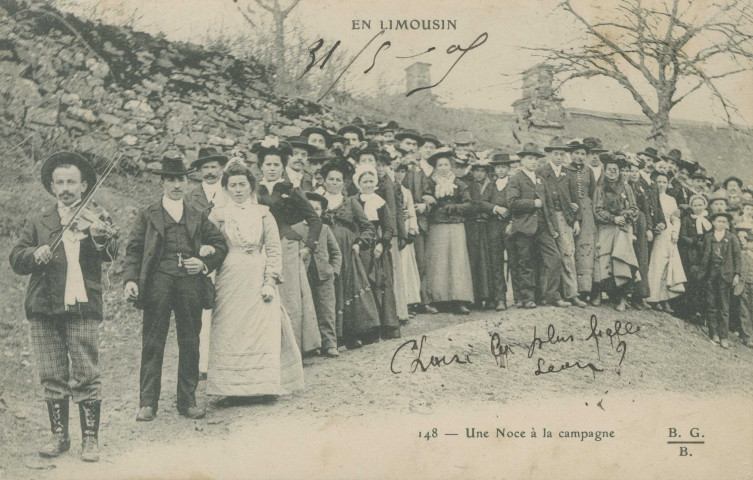 EN LIMOUSIN
31
Choisi la plus belle
148 — Une Noce à la campagne
B. G.
B.